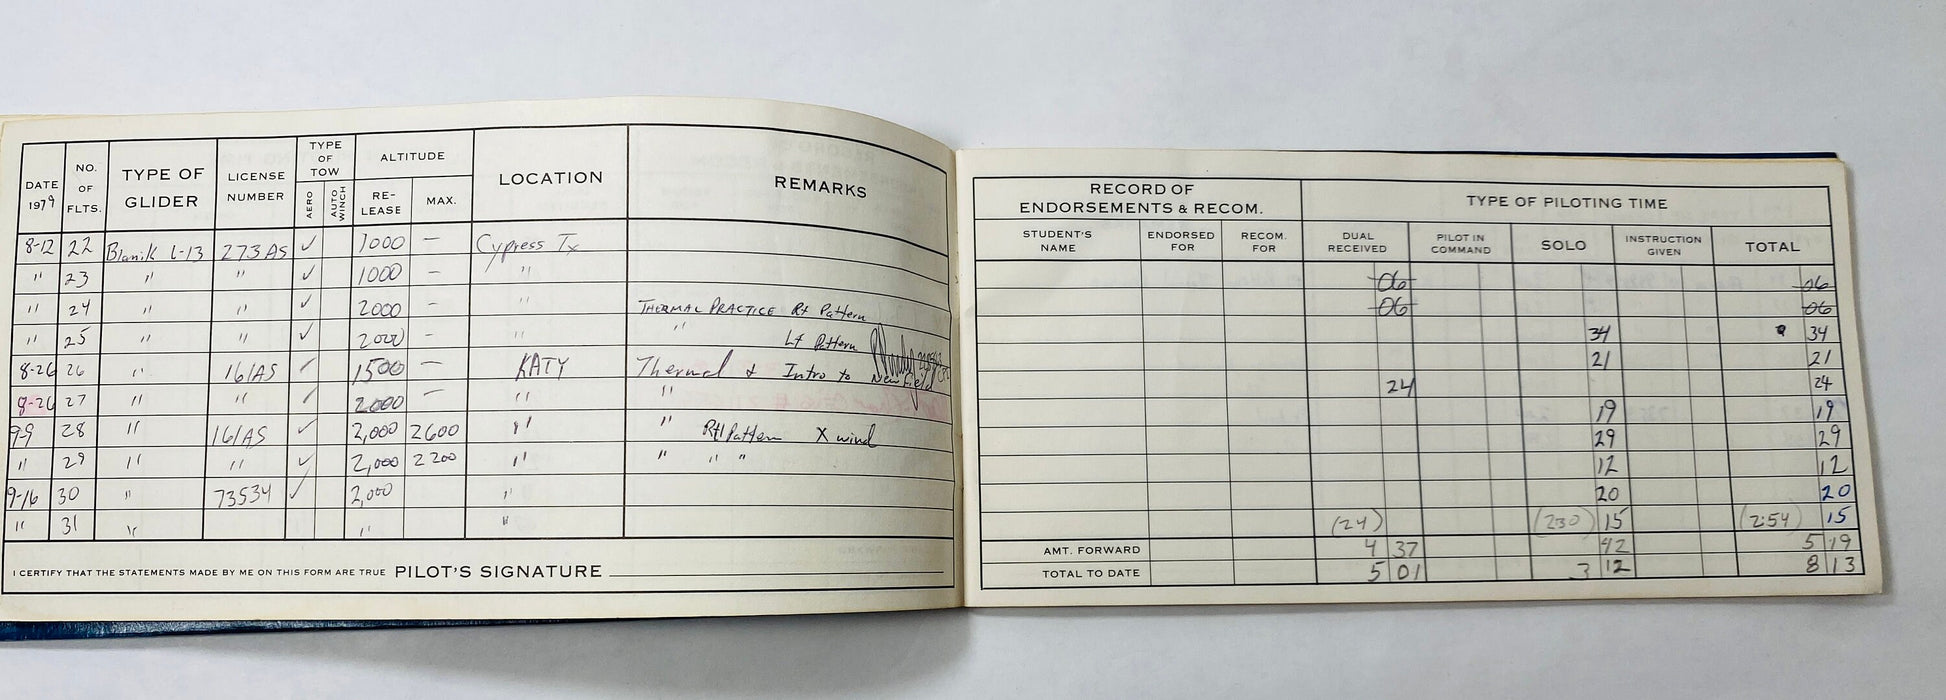 DATE 1979 NO. OF FLTS. TYPE OF GLIDER LICENSE NUMBER TYPE OF TOW AERO AUTO WINCH ALTITUDE RE-LEASE MAX. LOCATION REMARKS
8-12 22 Blanik L-13 273AS ✓ 1000 — Cypress Tx
" 23 " " ✓ 1000 — "
" 24 " " ✓ 2000 — " THERMAL PRACTICE Rt Pattern
" 25 " " ✓ 2000 — " " Lt Pattern
8-26 26 " 161AS ✓ 1500 — KATY Thermal & Intro to New field
8-26 27 " " ✓ 2000 — " "
9-9 28 " 161AS ✓ 2,000 2600 " " Rt Pattern X wind
" 29 " " ✓ 2,000 2200 " " " "
9-16 30 " 73534 ✓ 2,000 "
" 31 " " "
I CERTIFY THAT THE STATEMENTS MADE BY ME ON THIS FORM ARE TRUE PILOT'S SIGNATURE
RECORD OF ENDORSEMENTS & RECOM. TYPE OF PILOTING TIME
STUDENT'S NAME ENDORSED FOR RECOM. FOR DUAL RECEIVED PILOT IN COMMAND SOLO INSTRUCTION GIVEN TOTAL
06 06
06 06
34 34
21 21
24 24
19 19
29 29
12 12
20 20
(24) (230) 15 (2:54) 15
AMT. FORWARD 4 37 42 5 19
TOTAL TO DATE 5 01 3 12 8 13